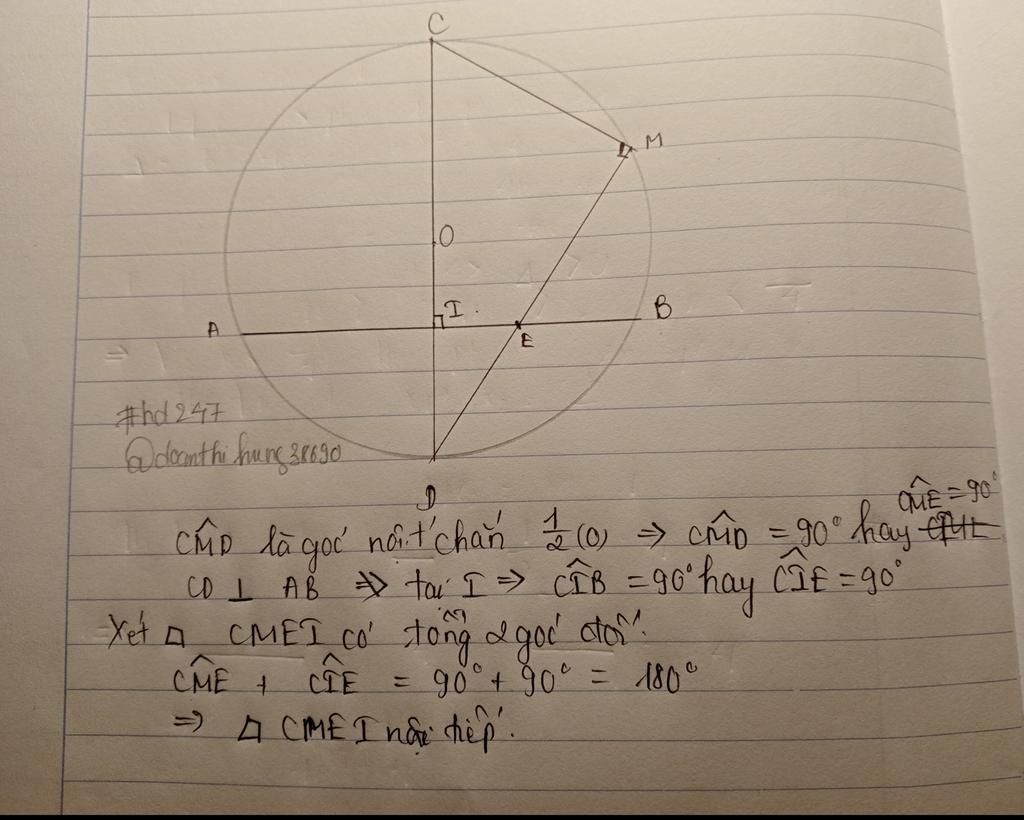 C
M
O
I
A
B
E
#hd247
@doanthihung38690
D
CM̂E = 90°
CM̂D là góc nội t' chắn 1/2 (O) ⇒ CM̂D = 90° hay
CD ⊥ AB ⇒ tại I ⇒ CÎB = 90° hay CÎE = 90°
Xét □ CMEI có tổng 2 góc đối:
CM̂E + CÎE = 90° + 90° = 180°
⇒ □ CMEI nội tiếp.